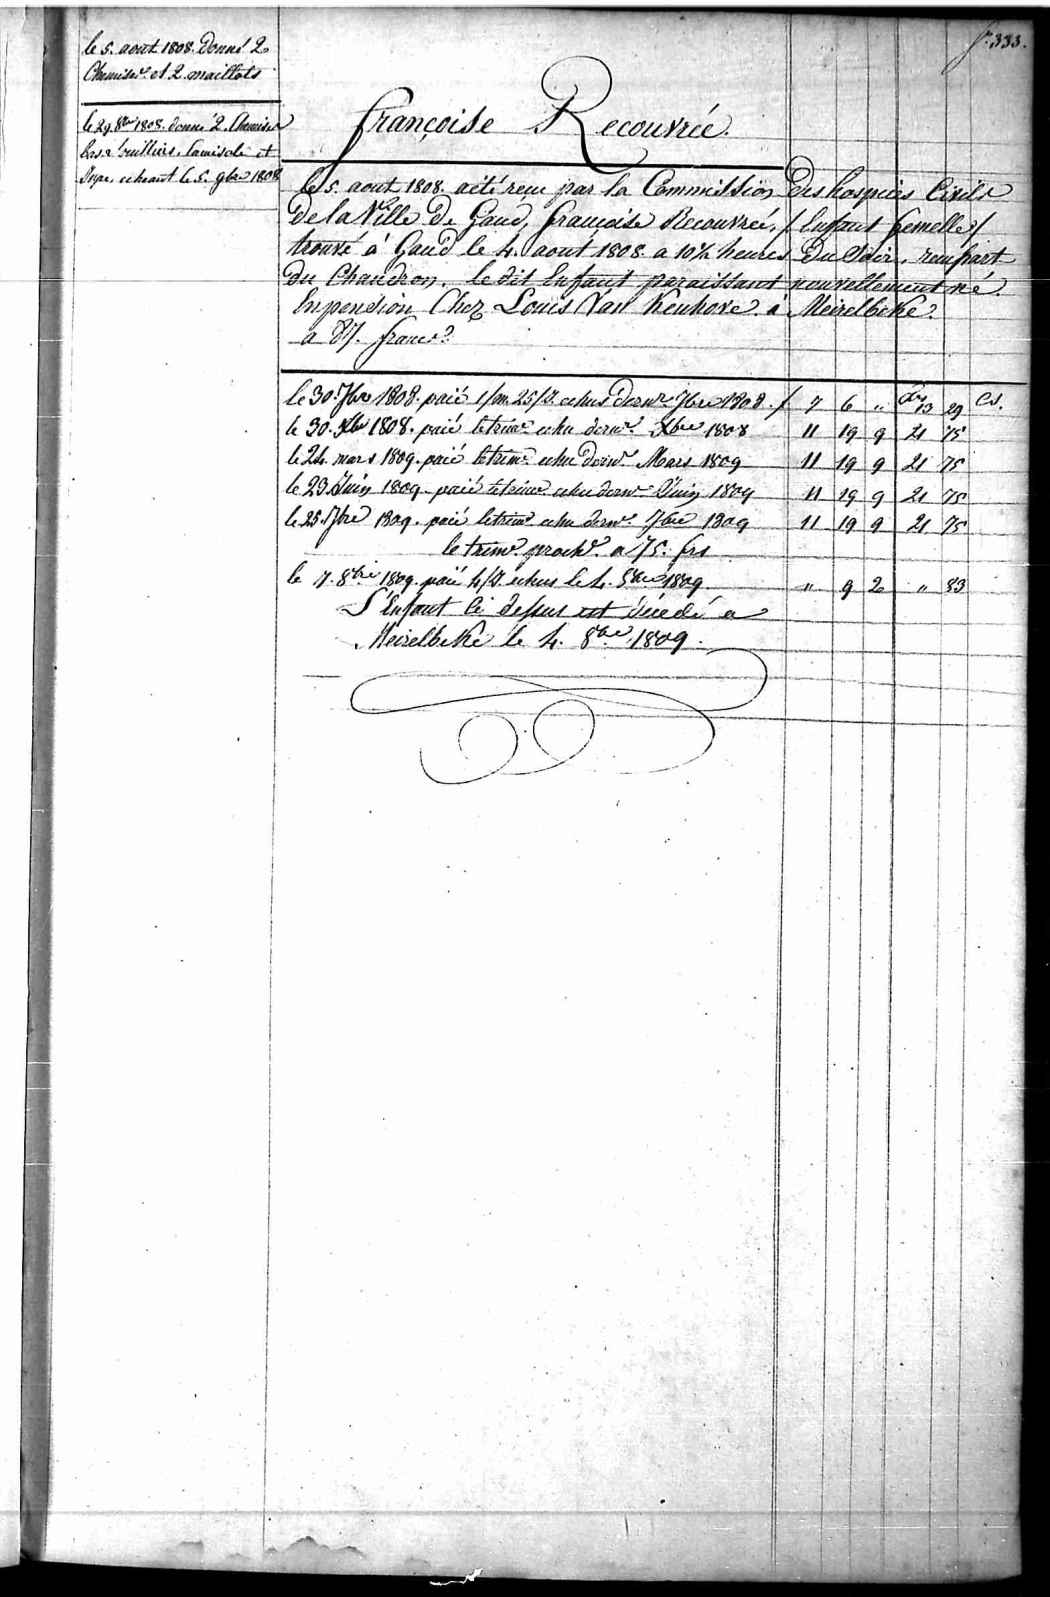 fo. 333.
le 5. aout 1808. donné 2
Chemises et 2. maillots
le 29. 8bre 1808. donné 2. Chemises
bas & souilliers, Camisole et
Jupe, echeant le 5. 9bre 1808
françoise Recouvrée.
le 5. aout 1808. a été reçu par la Commission des hospices Civils
de la Ville de Gand, françoise Recouvrée, / Enfant femelle /
trouvé à Gand le 4. aout 1808 a 10½ heures du Soir, rempart
du Chaudron, le dit Enfant paraissant nouvellement né.
En pension Chez Louis Van Keuhove à Meirelbeke.
a 87. francs
le 30. 7bre 1808. paié 1/m 25/7 echus dernr 7bre 1808. / 7 6 " 13 29 Cs.
le 30. Xbre 1808. paié le trimre echu dernr Xbre 1808 11 19 9 21 75
le 24. mars 1809. paié le trimre echu dernr Mars 1809 11 19 9 21 75
le 23 Juin 1809. paié le trimre echu dernr Juin 1809 11 19 9 21 75
le 25. 7bre 1809. paié le trimre echu dernr 7bre 1809 11 19 9 21 75
le trimre prochn a 75. frs
le 7. 8bre 1809. paié 4/7 echus le 4. 8bre 1809 " 9 2 " 83
L'Enfant ci dessus est décedé a
Meirelbeke le 4. 8bre 1809.